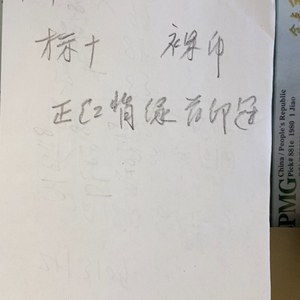 标十 裸印
正红背绿首印冠
PMG
China / People's Republic
Pick# 881a 1980 1 Jiao